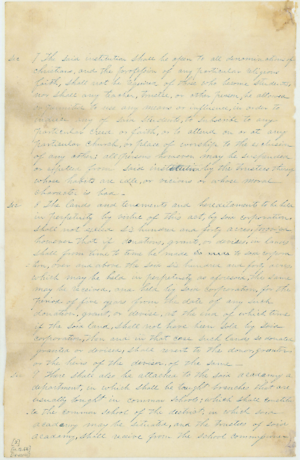 Sec 7 The said institution shall be open to all denominations of
christians, and the profession of any particular religious
faith, shall not be required of those who become students
nor shall any teacher, trustee, or other person, be allowed
to use any means or influence, in order to
require any of said students, to subscribe to any
particular creed or faith, or to attend on or at any
particular church, or place of worship to the exclusion
of any other; all persons however may be suspended
or expelled from said institution by the trustees thereof
whose habits are idle, or vicious or whose moral
character is bad.
Sec 8. The lands and tenements and hereditaments to be held
in perpetuity by virtue of this act, by said corporation
shall not exceed six hundred and forty acres; provided
however that if donations, grants, or devises, in lands
shall from time to time be made to said corporation,
over and above the said six hundred and forty acres
which may be held in perpetuity as aforesaid, the same
may be received, and held by said Corporation, for the
period of five years from the date of any such
donation, grant, or devise, at the end of which time
if the said land, shall not have been sold by said
corporation, then and in that case such lands so donated
granted or devised, shall revert to the donor, grantor
or the heirs of the devisor, of the same.
Sec 9 There shall also be attached to the said academy a
department, in which shall be taught branches that are
usually taught in common schools; which shall entitle
to the common school of the district, in which said
academy may be situated, and the trustees of said
academy, shall receive from the school commissioner